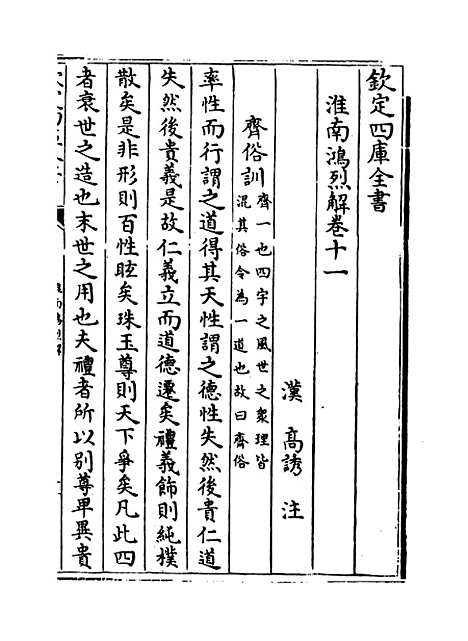 欽定四庫全書
淮南鴻烈解卷十一
漢 高誘 注
齊俗訓 齊一也四宇之風世之衆理皆
混其俗令為一道也故曰齊俗
率性而行謂之道得其天性謂之德性失然後貴仁道
失然後貴義是故仁義立而道德遷矣禮義飾則純樸
散矣是非形則百姓眩矣珠玉尊則天下爭矣凡此四
者衰世之造也末世之用也夫禮者所以别尊卑異貴